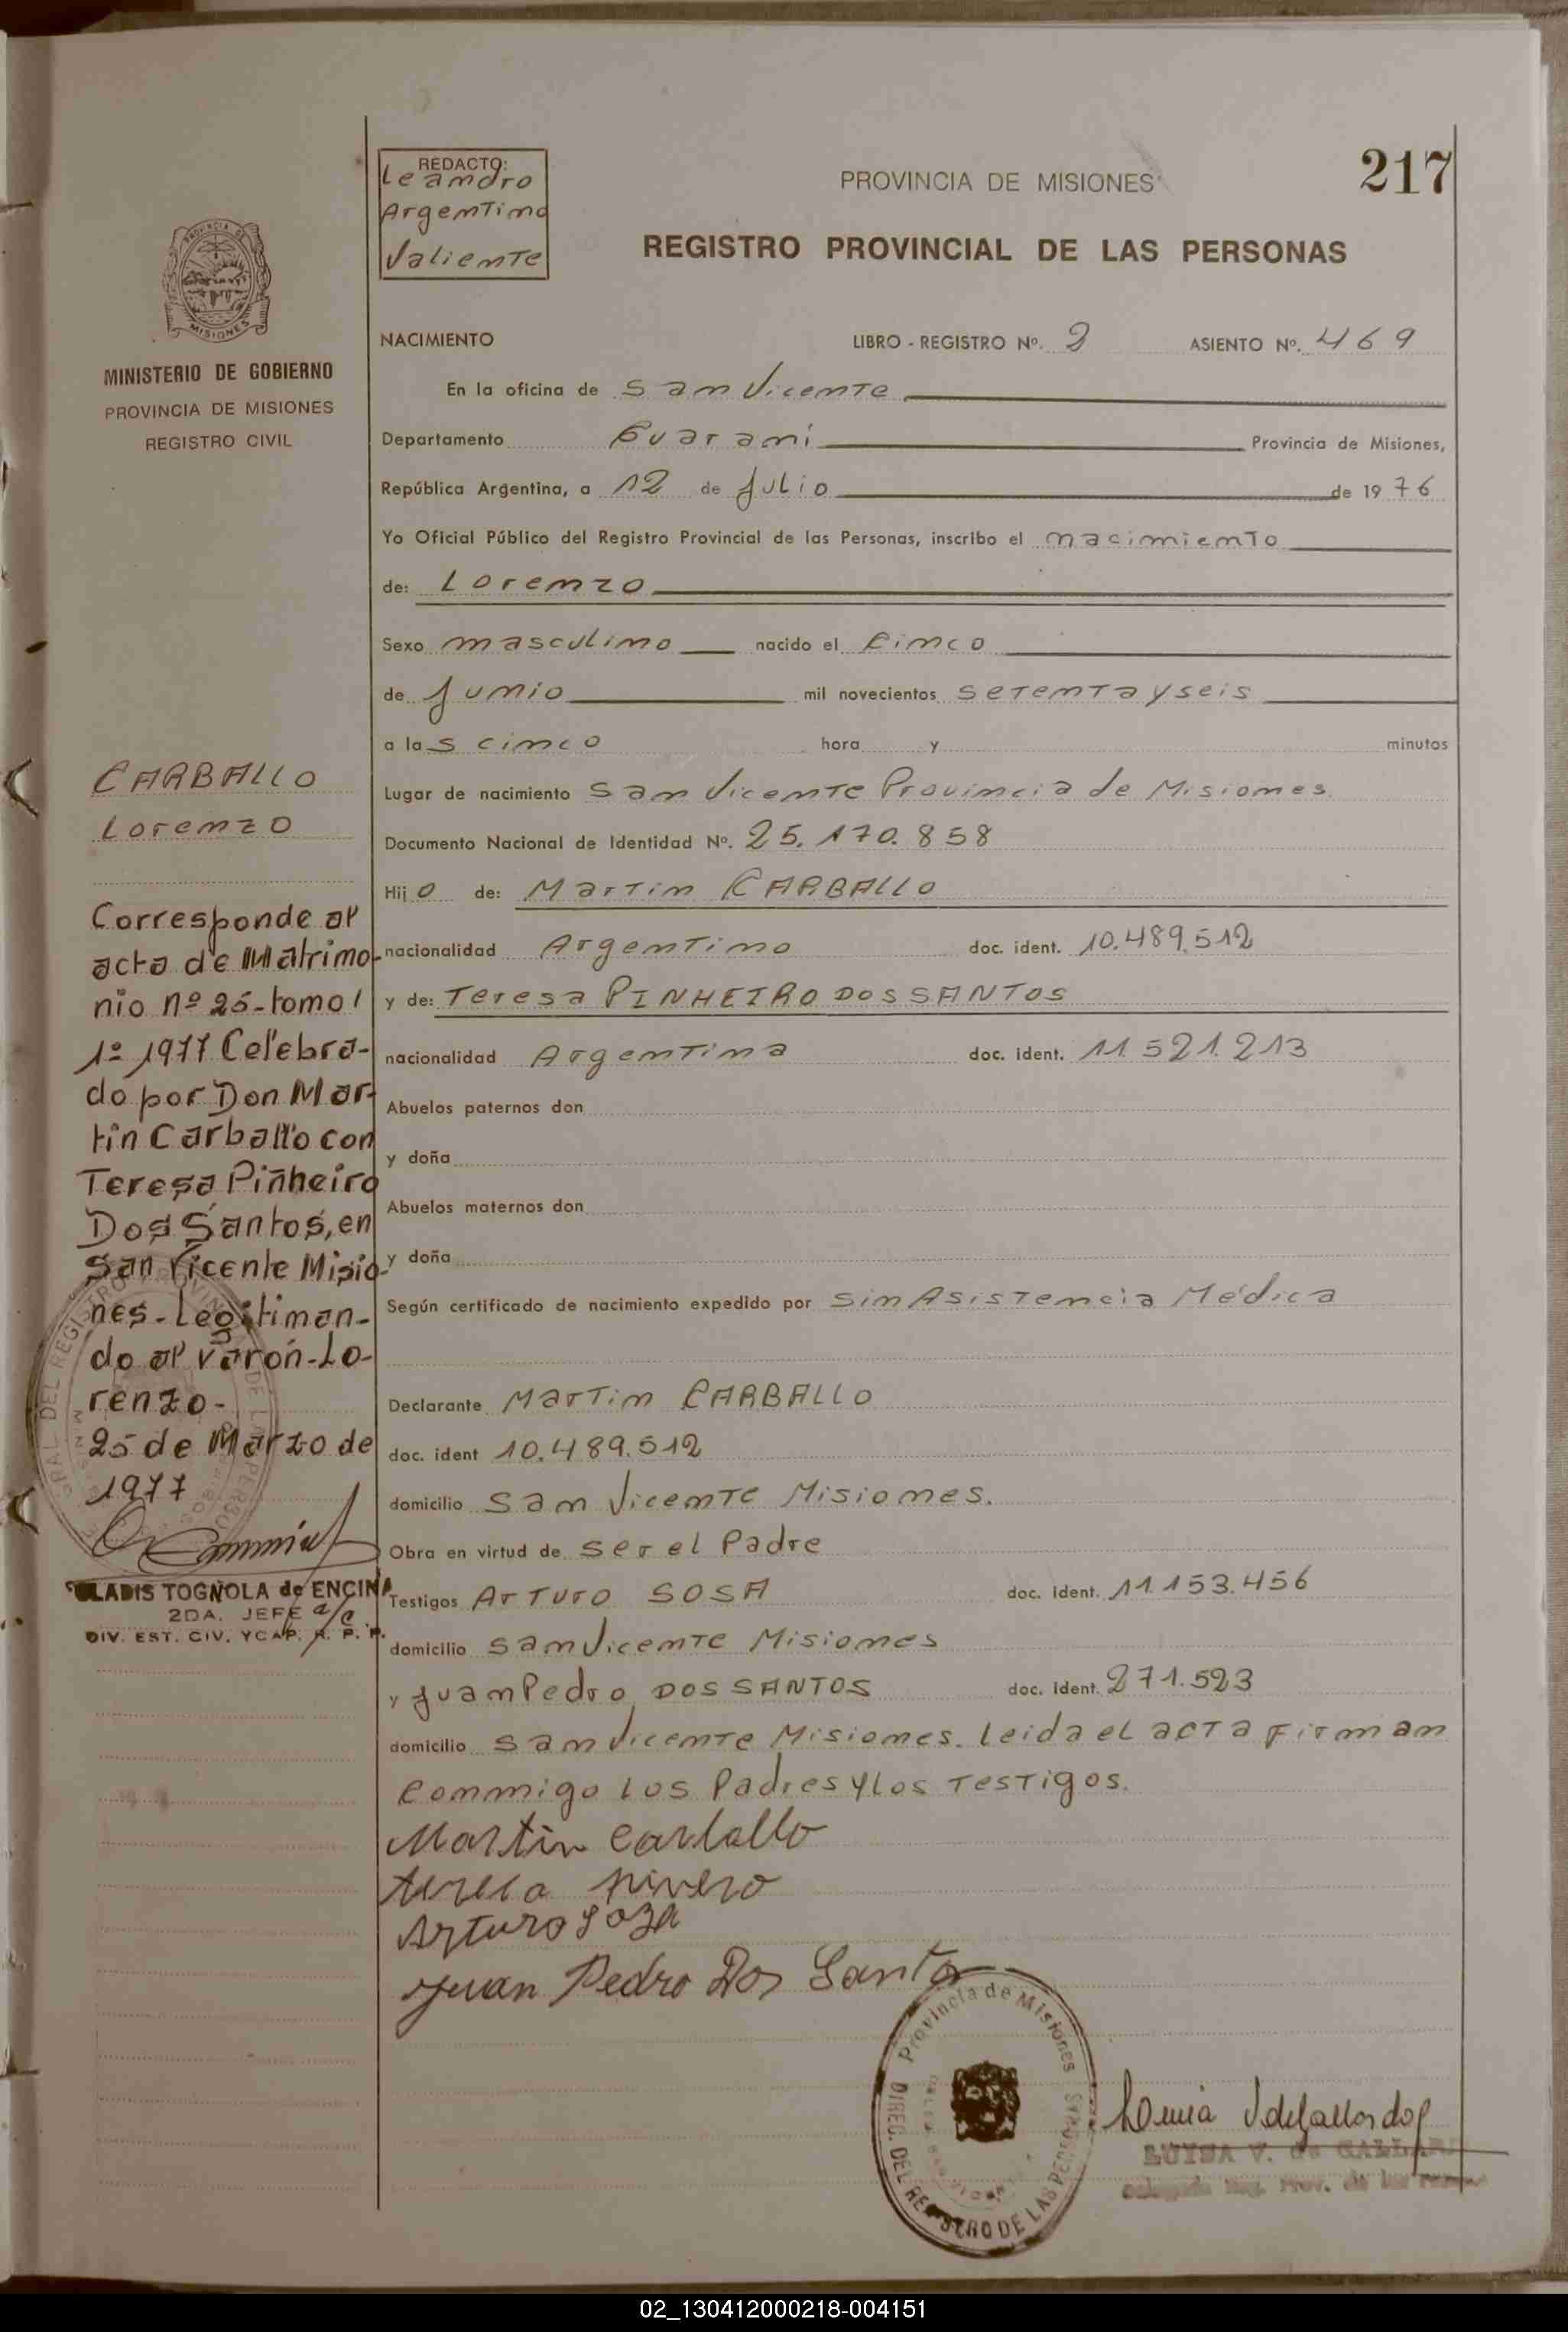 REDACTO:
Leandro
Argentino
Valiente
PROVINCIA DE MISIONES
217
REGISTRO PROVINCIAL DE LAS PERSONAS
PROVINCIA DE
MISIONES
MINISTERIO DE GOBIERNO
PROVINCIA DE MISIONES
REGISTRO CIVIL
NACIMIENTO LIBRO - REGISTRO Nº. 2 ASIENTO Nº. 469
En la oficina de San Vicente
Departamento Guaraní Provincia de Misiones,
República Argentina, a 12 de Julio de 1976
Yo Oficial Público del Registro Provincial de las Personas, inscribo el nacimiento
de: Lorenzo
Sexo masculino nacido el Cinco
de Junio mil novecientos setenta y seis
a las cinco hora y minutos
Lugar de nacimiento San Vicente Provincia de Misiones
Documento Nacional de Identidad Nº. 25.170.858
Hijo de: Martin CARBALLO
nacionalidad Argentino doc. ident. 10.489.512
y de: Teresa PINHEIRO DOS SANTOS
nacionalidad Argentina doc. ident. 11.521.213
Abuelos paternos don
y doña
Abuelos maternos don
y doña
Según certificado de nacimiento expedido por Sin Asistencia Médica
Declarante Martin CARBALLO
doc. ident 10.489.512
domicilio San Vicente Misiones.
Obra en virtud de ser el Padre
Testigos Arturo SOSA doc. ident. 11.153.456
domicilio San Vicente Misiones
y Juan Pedro DOS SANTOS doc. ident. 271.523
domicilio San Vicente Misiones. leida el acta firman
conmigo los Padres y los testigos.
Martin Carballo
Teresa Pinero
Arturo Soza
Juan Pedro Dos Santo
CARBALLO
Lorenzo
Corresponde al
acta de Matrimo-
nio nº 25-tomo 1
1º 1977 Celebra-
do por Don Mar-
tin Carballo con
Teresa Piñheiro
Dos Santos, en
San Vicente Misio-
nes-Legitiman-
do al varón-Lo-
renzo-
25 de Marzo de
1977
GLADIS TOGNOLA de ENCINA
2DA. JEFE a/c
DIV. EST. CIV. Y CAP. R. P. P.
Provincia de Misiones
DIREG. DEL REGISTRO DE LAS PERSONAS
LUISA V. de GALLARDO
Delegada Reg. Prov. de las Personas
02_130412000218-004151